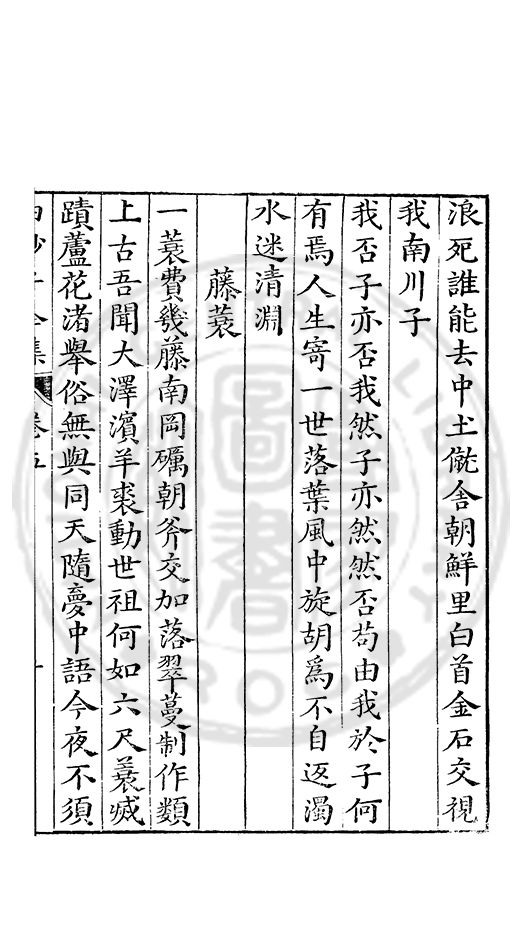 浪死誰能去中土僦舍朝鮮里白首金石交視
我南川子
我否子亦否我然子亦然然否苟由我於子何
有焉人生寄一世落葉風中旋胡爲不自返濁
水迷清淵
藤蓑
一蓑費幾藤南岡礪朝斧交加落翠蔓制作類
上古吾聞大澤濱羊裘動世祖何如六尺蓑滅
蹟蘆花渚舉俗無與同天隨夢中語今夜不須
卷五